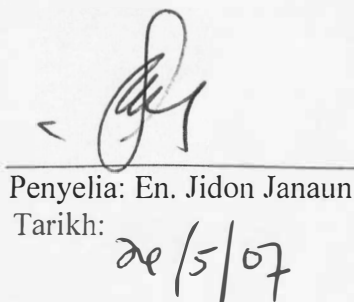 Penyelia: En. Jidon Janaun
Tarikh:
/5/07